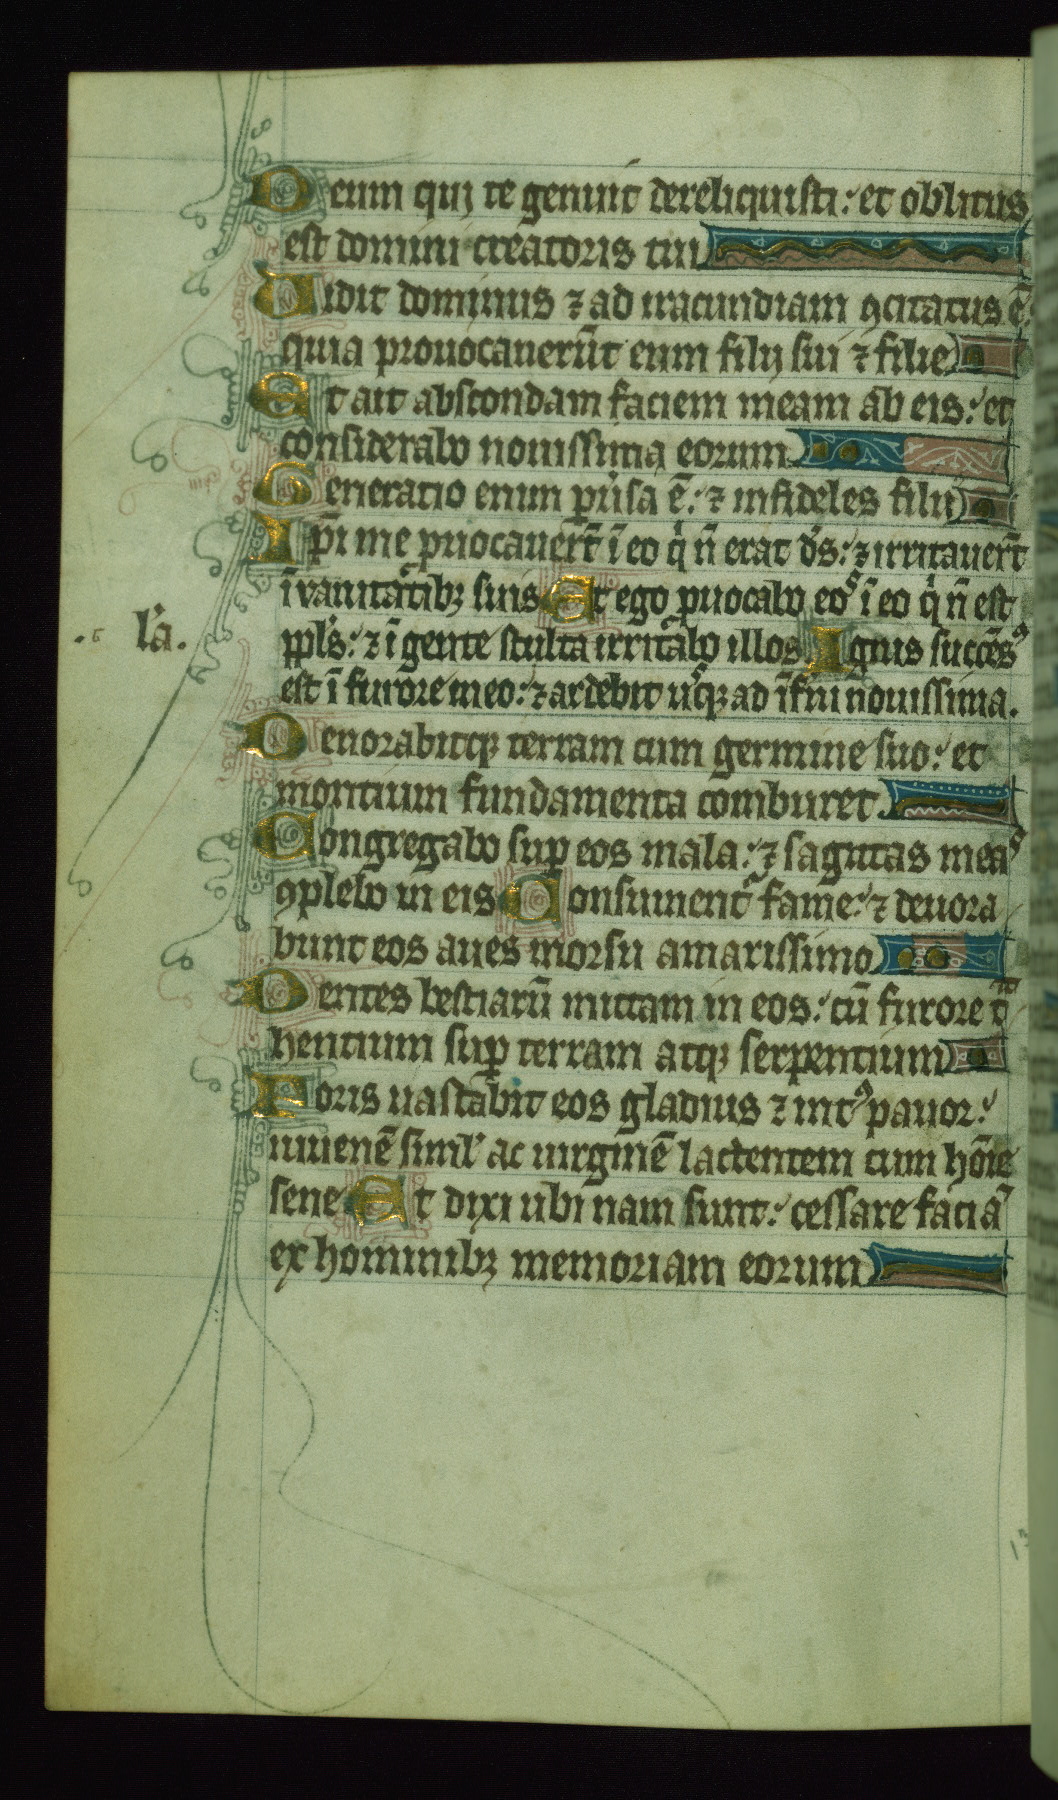 Deum qui te genuit dereliquisti: et oblitus
est domini creatoris tui
Vidit dominus ⁊ ad iracundiam ꝯcitatus ē:
quia prouocauerūt eum filij sui ⁊ filie
Et ait abscondam faciem meam ab eis: et
considerabo nouissima eorum
Generatio enim ꝑuͥsa ē: ⁊ infideles filij
Ip̄i me ꝓuocauer̄t ī eo qͥ n̄ erat dͥs: ⁊ irritauer̄t
ī vanitatibꝫ suis Et ego ꝓuocabo eoˢ ī eo qͥ n̄ est
pplͥs: ⁊ ī gente stulta irritabo illos Ignis succēsꝰ
est ī furore meo: ⁊ ardebit usqꝫ ad īfͥni nouissima.
Deuorabitqꝫ terram cum germine suo: et
montium fundamenta comburet.
Congregabo suꝑ eos mala: ⁊ sagittas meaˢ
ꝯplebo in eis Consumentͬ fame: ⁊ deuora
bunt eos aues morsu amarissimo
Dentes bestiarū mittam in eos: cū furore tͣ
hentium suꝑ terram atqꝫ serpentium
Foris uastabit eos gladius ⁊ intꝰ pauor:
iuuenē simlͥ ac uirginē lactentem cum hōīe
sene Et dixi ubi nam sunt: cessare faciā
ex hominibꝫ memoriam eorum
lͥa.